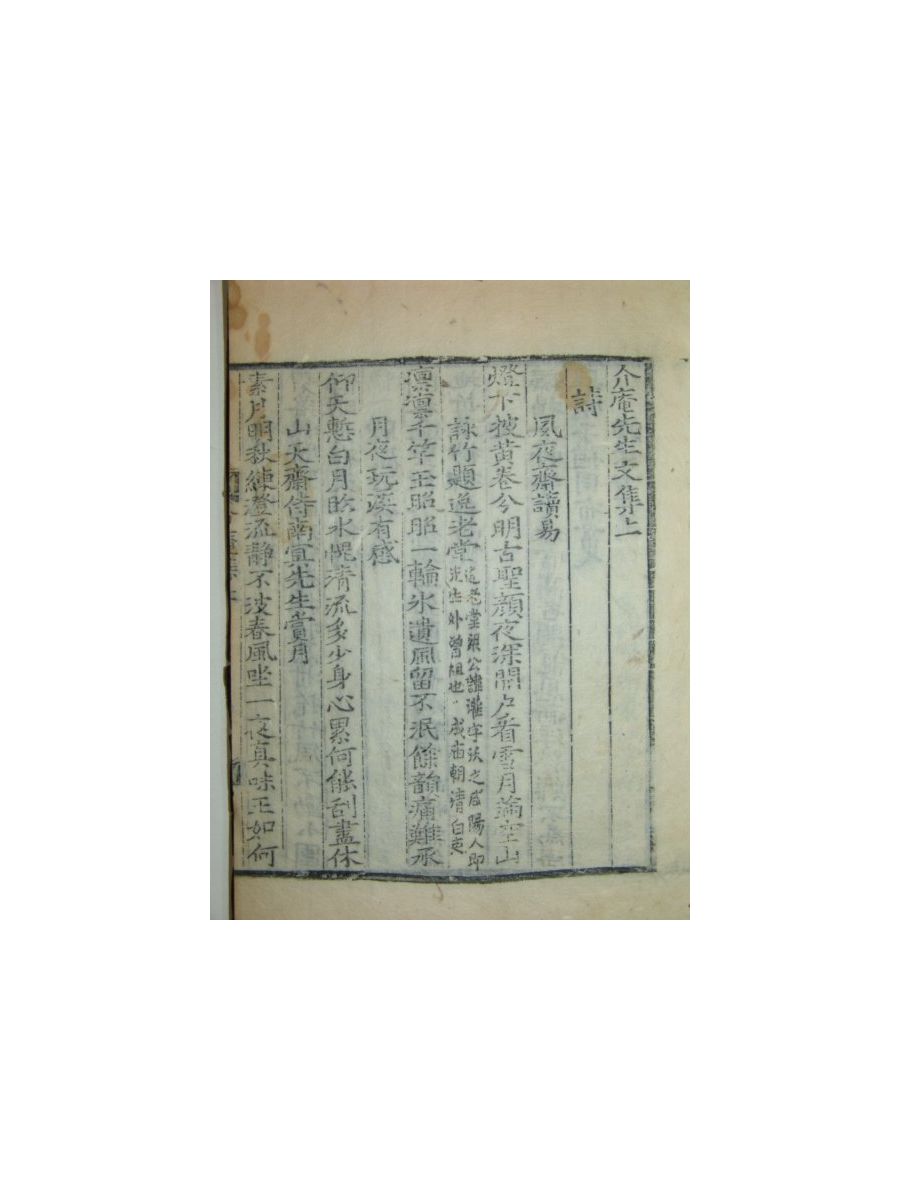 介庵先生文集上
詩
風夜齋讀易
燈下披黃卷分明古聖顔夜深開戶看雪月滿空山
詠竹題逸老堂 逸老堂銀公諱灌字沃之咸陽人即先生外曾祖也成廟朝淸白吏
凛凛千竿玉昭昭一輪氷遺風留不泯餘韻痛難承
月夜玩溪有感
仰天慙白月臨水愧淸流多少身心累何能刮盡休
山天齋侍南冥先生賞月
素月明秋練澄流靜不波春風坐一夜眞味正如何